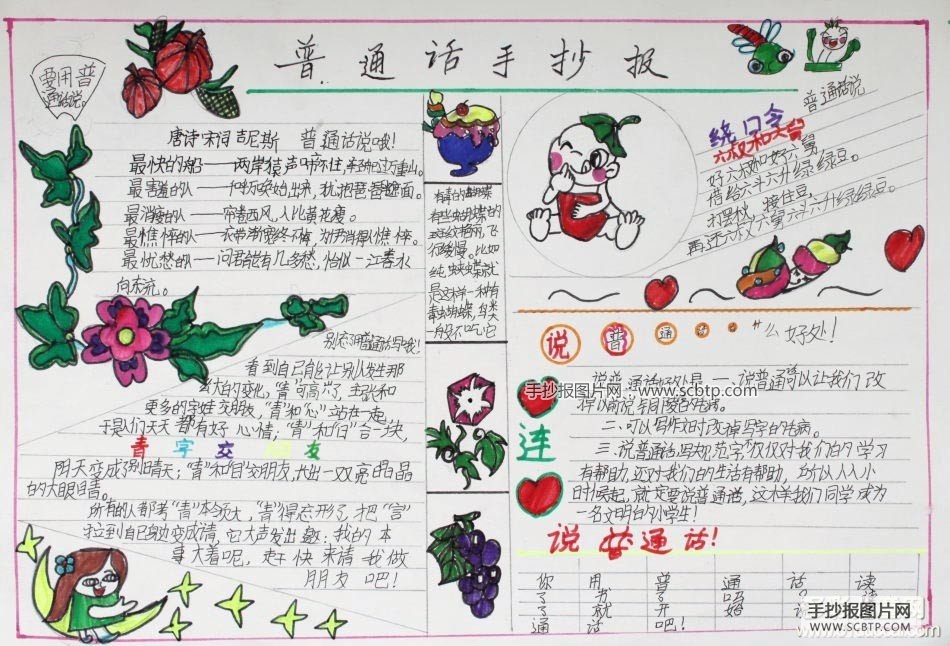 普通话手抄报
要用普
通话说。
唐诗宋词吉尼斯 普通话说哦!
最快的船——两岸猿声啼不住,轻舟已过万重山。
最害羞的人——千呼万唤始出来,犹抱琵琶半遮面。
最消瘦的人——帘卷西风,人比黄花瘦。
最憔悴的人——衣带渐宽终不悔,为伊消得人憔悴。
最忧愁的人——问君能有几多愁,恰似一江春水
向东流。
别忘了用普通话写哦!
看到自己能让别人发生那
么大的变化,“青”可高兴了,主动和
更多的字娃交朋友,“青”和“心”站在一起,
于是人们天天都有好心情;“青”和“日”合一块,
青字交朋友
阴天变成了晴天;“青”和“目”交朋友,大出一双亮晶晶
的大眼睛。
所有的人都夸“青”本领大,“青”得意忘形了,把“言”
拉到自己身边变成请,它大声发出邀:我的本
事大着呢,赶快来请我做
朋友吧!
有毒的蝴蝶
有些蝴蝶的
飞行缓慢。比如
是这样一种有
毒蝴蝶,鸟类
一般不吃它
普通话说
绕口令
六叔和六舅
好六叔和好六舅
借给六斗六升绿绿豆。
打罢秋,接住豆,
再还六叔六舅六斗六升绿绿豆。
说普通话“么好处!
说普通话好处是:一、说普通话可以让我们改
二、可以写作文时改掉写字的毛病。
三、说普通话,写规范字不仅仅对我们的学习
有帮助,还对我们的生活有帮助,所以人人小
时候起,就一定要说普通话,这才样我们同学成为
一名文明的小学生!
连
说普通话!
你用普通话读
了书了吗
了就开始
通话吧!
手抄报图片网:www.scbtp.com
手抄报图片网
WWW.SCBTP.COM